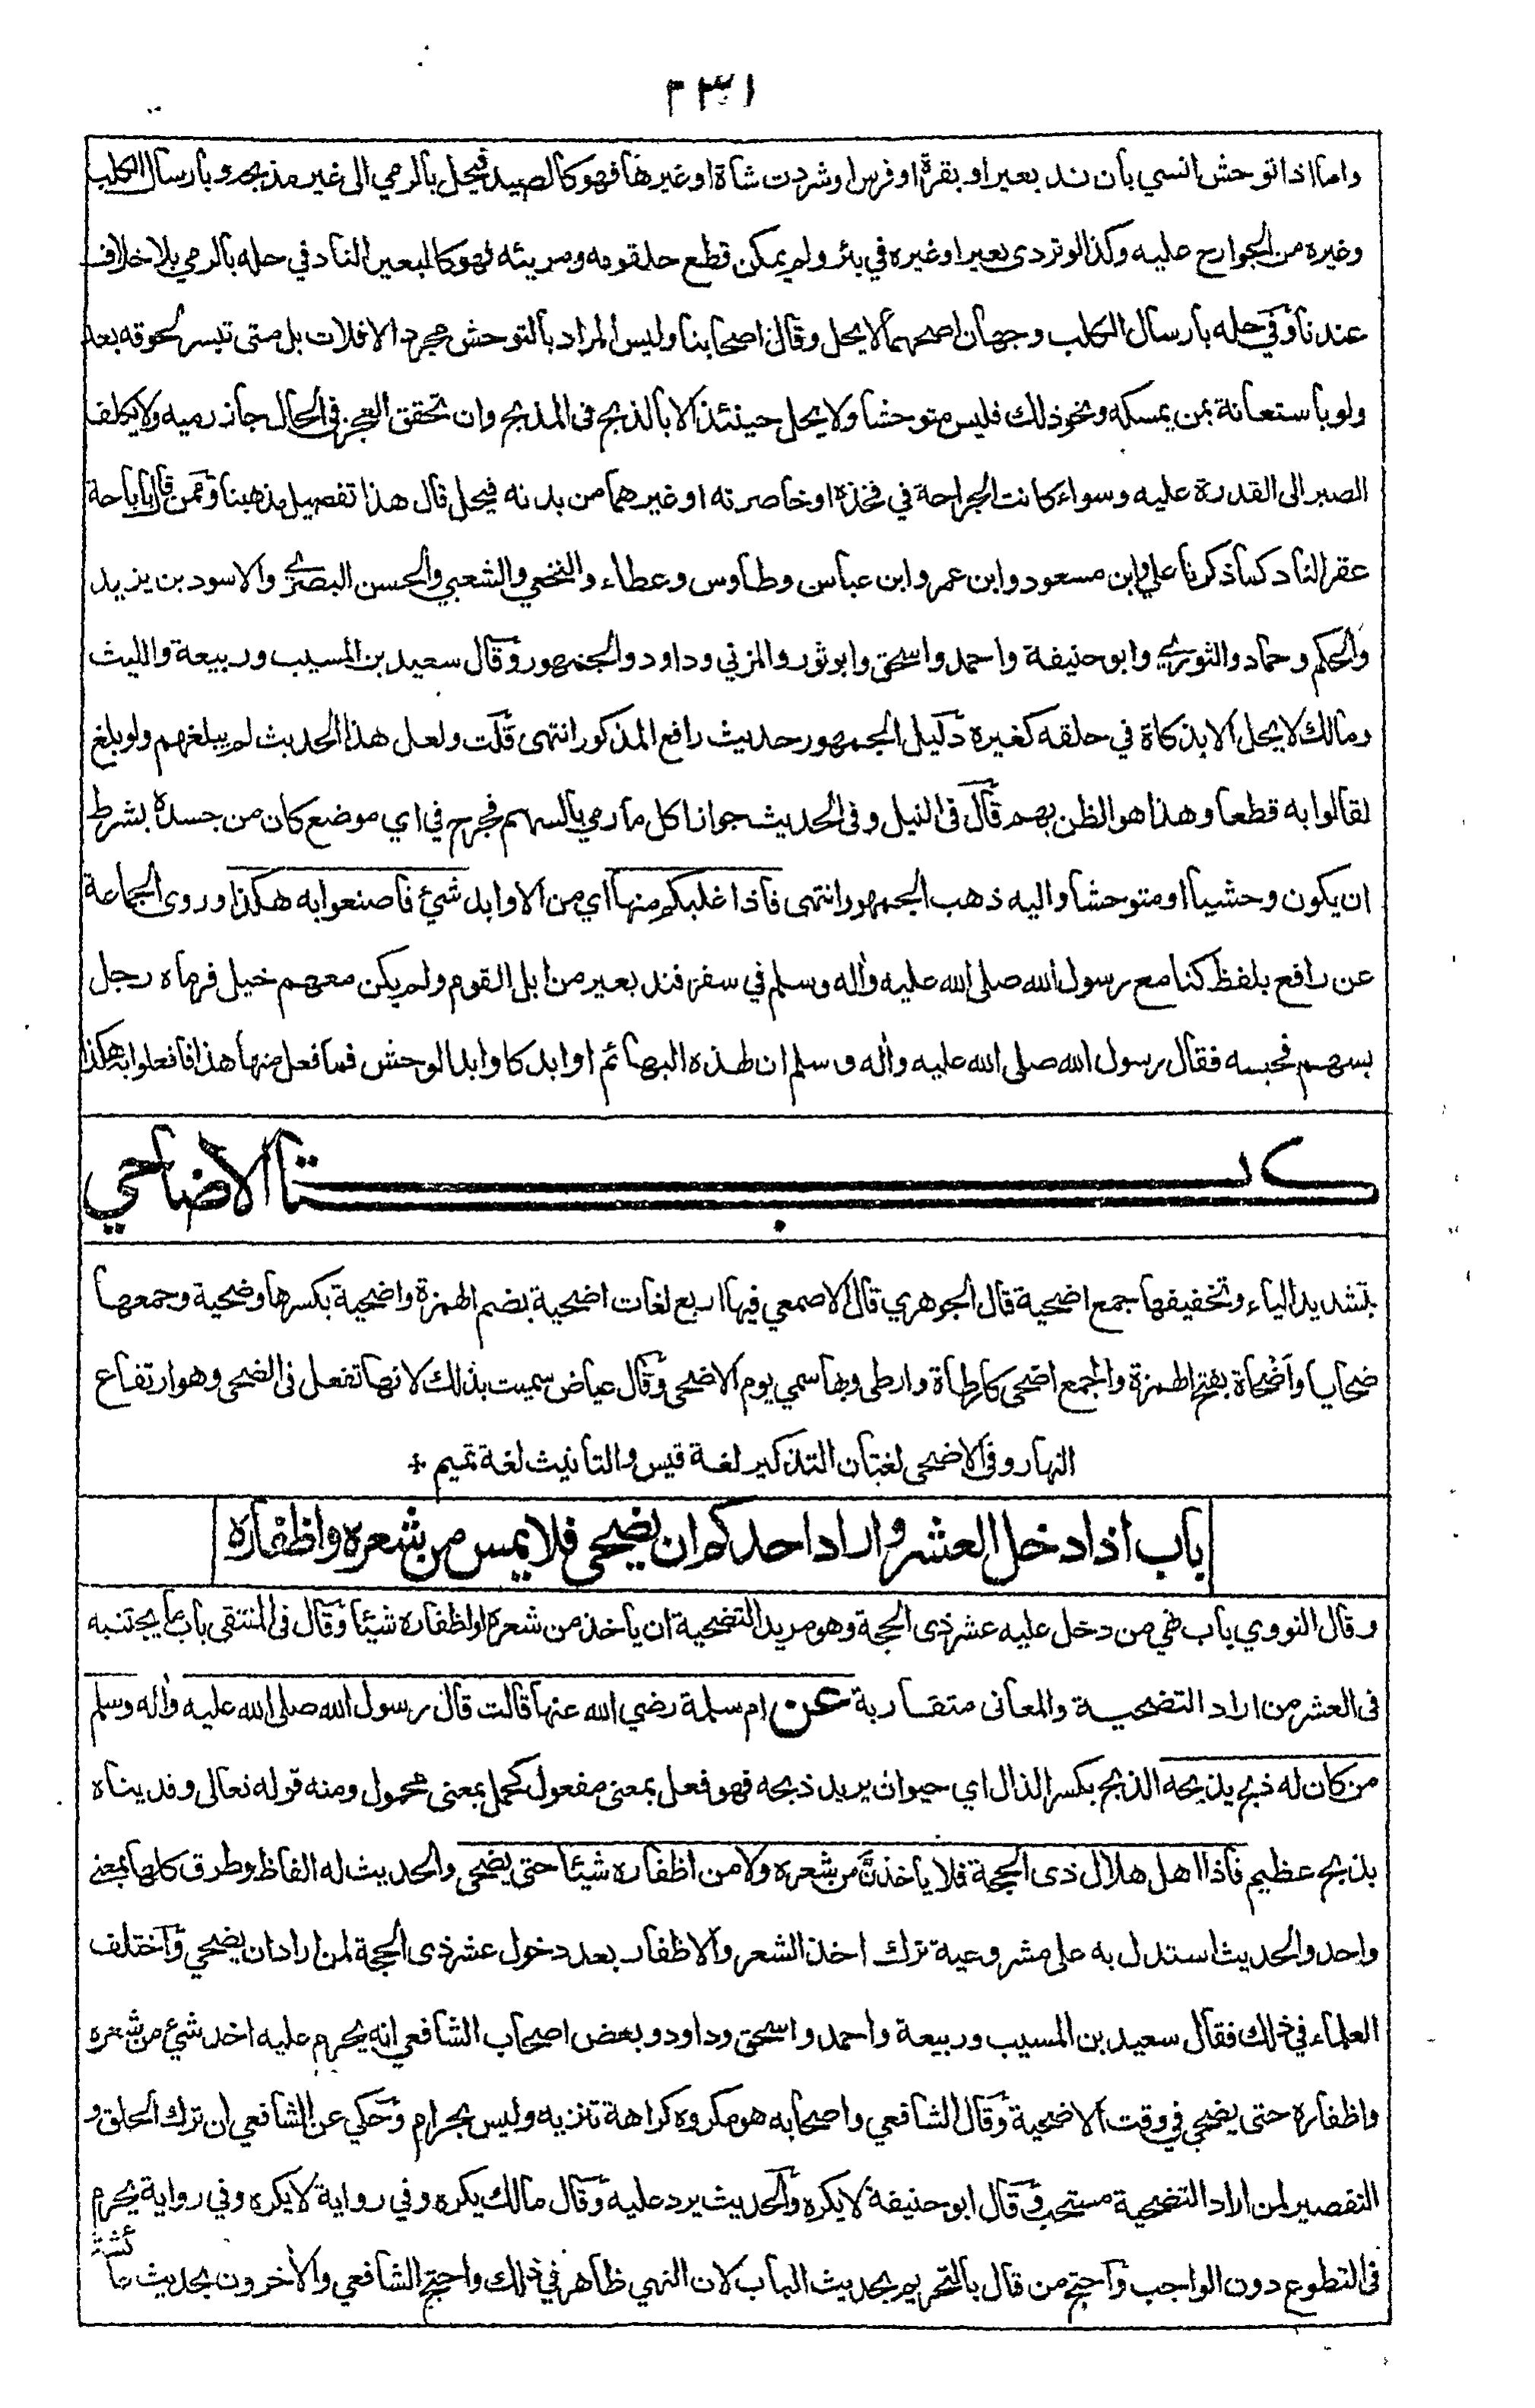 ٣٣١
واما اذا توحش انسي بان ند بعير او بقرة او فرس او شردت شاة او غيرها فهو كالصيد فيحل بالرمي الى غير مذبحه وبارسال الكلب
وغيره من الجوارح عليه وكذا لو تردى بعير او غيره في بئر ولم يمكن قطع حلقومه ومريئه فهو كالبعير الناد في حله بالرمي بلا خلاف
عندنا وفي حله بارسال الكلب وجهان اصحهما لا يحل وقال اصحابنا وليس المراد بالتوحش مجرد الافلات بل متى تيسر لحوقه بعد
ولو باستعانة بمن يمسكه ونحو ذلك فليس متوحشا ولا يحل حينئذ الا بالذبح في المذبح وان تحقق العجز في الحال جاز رميه ولا يكلف
الصبر الى القدرة عليه وسواء كانت الجراحة في فخذه او خاصرته او غيرهما من بدنه فيحل قال هذا تفصيل مذهبنا وممن قال باباحة
عقر الناد كما ذكرنا علي وابن مسعود وابن عمر وابن عباس وطاوس وعطاء والنخعي والشعبي والحسن البصري والاسود بن يزيد
والحكم وحماد والثوري وابو حنيفة واحمد واسحق وابو ثور والمزني وداود والجمهور وقال سعيد بن المسيب وربيعة والليث
ومالك لا يحل الا بذكاة في حلقه كغيره دليل الجمهور حديث رافع المذكور انتهى قلت ولعل هذا الحديث لم يبلغهم ولو بلغ
لقالوا به قطعا وهذا هو الظن بهم قال في النيل وفي الحديث جواز اكل ما رمي بالسهم فجرح في اي موضع كان من جسده بشرط
ان يكون وحشيا او متوحشا واليه ذهب الجمهور انتهى فاذا غلبكم منها اي من الاوابد شيئ فاصنعوا به هكذا وروى الجماعة
عن رافع بلفظ كنا مع رسول الله صلى الله عليه واله وسلم في سفر فند بعير من ابل القوم ولم يكن معهم خيل فرماه رجل
بسهم فحبسه فقال رسول الله صلى الله عليه واله وسلم ان لهذه البهائم اوابد كاوابد الوحش فما فعل منها هذا فافعلوا به هكذا
كتاب الاضاحي
بتشديد الياء وتخفيفها جمع اضحية قال الجوهري قال الاصمعي فيها اربع لغات اضحية بضم الهمزة واضحية بكسرها وضحية وجمعها
ضحايا واضحاة بفتح الهمزة والجمع اضحى كارطاة وارطى وبها سمي يوم الاضحى وقال عياض سميت بذلك لانها تفعل في الضحى وهو ارتفاع
النهار وفي الاضحى لغتان التذكير لغة قيس والتانيث لغة تميم +
باب اذا دخل العشر واراد احدكم ان يضحي فلا يمس من شعره واظفاره
وقال النووي باب نهي من دخل عليه عشر ذى الحجة وهو مريد التضحية ان ياخذ من شعره او اظفاره شيئا وقال في المنتقى باب ما يجتنبه
فى العشر من اراد التضحية والمعانى متقاربة عن ام سلمة رضي الله عنها قالت قال رسول الله صلى الله عليه واله وسلم
من كان له ذبح يذبحه الذبح بكسر الذال اي حيوان يريد ذبحه فهو فعل بمعنى مفعول كحمل بمعنى محمول ومنه قوله تعالى وفديناه
بذبح عظيم فاذا اهل هلال ذى الحجة فلا ياخذن من شعره ولا من اظفاره شيئا حتى يضحي والحديث له الفاظ وطرق كلها بمعنى
واحد والحديث استدل به على مشروعية ترك اخذ الشعر والاظفار بعد دخول عشر ذى الحجة لمن اراد ان يضحي واختلف
العلماء في ذلك فقال سعيد بن المسيب وربيعة واحمد واسحق وداود وبعض اصحاب الشافعي انه يحرم عليه اخذ شيئ من شعره
واظفاره حتى يضحي في وقت الاضحية وقال الشافعي واصحابه هو مكروه كراهة تنزيه وليس بحرام وحكي عن الشافعي ان ترك الحلق و
التقصير لمن اراد التضحية مستحب وقال ابو حنيفة لا يكره والحديث يرد عليه وقال مالك يكره وفي رواية لا يكره وفي رواية يحرم
فى التطوع دون الواجب واحتج من قال بالتحريم بحديث الباب لان النهي ظاهر في ذلك واحتج الشافعي والاخرون بحديث عائشة